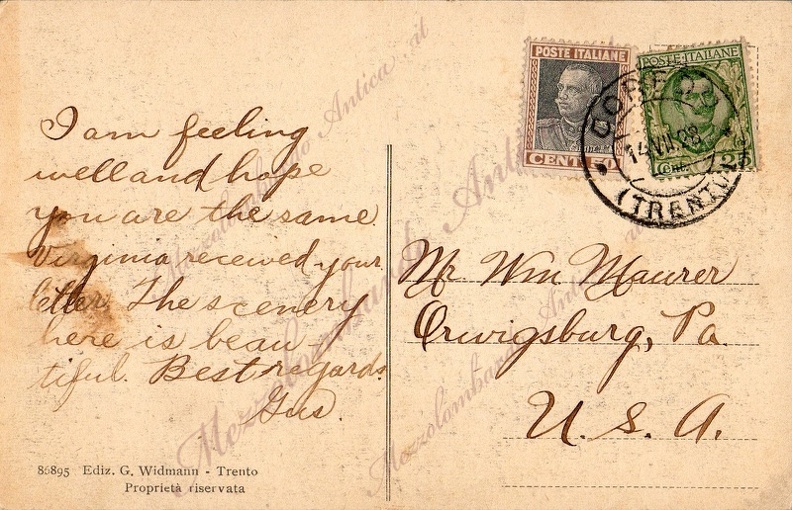 I am feeling
well and hope
you are the same.
Virginia received your
letter. The scenery
here is beau-
tiful. Best regards
Gus.
86895 Ediz. G. Widmann - Trento
Proprietà riservata
POSTE ITALIANE
CENT. 50
POSTE ITALIANE
Cent. 25
14.VII.28
(TRENTO)
Mr Wm Maurer
Orwigsburg, Pa.
U. S. A.
Mezzolombardo Antica.it
Mezzolombardo Antica
Mezzolombardo Antica